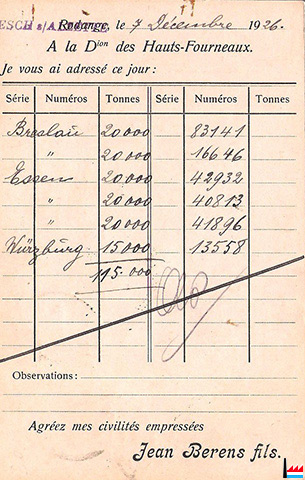 ESCH s/ALZETTE
Rodange, le 7 Décembre 1926.
A la Dion des Hauts-Fourneaux.
Je vous ai adressé ce jour :
Série Numéros Tonnes Série Numéros Tonnes
Breslau 20000 83141
" 20000 16646
Essen 20000 42932
" 20000 40813
" 20000 41896
Würzburg 15000 13558
115.000
Observations :
Agréez mes civilités empressées
Jean Berens fils.